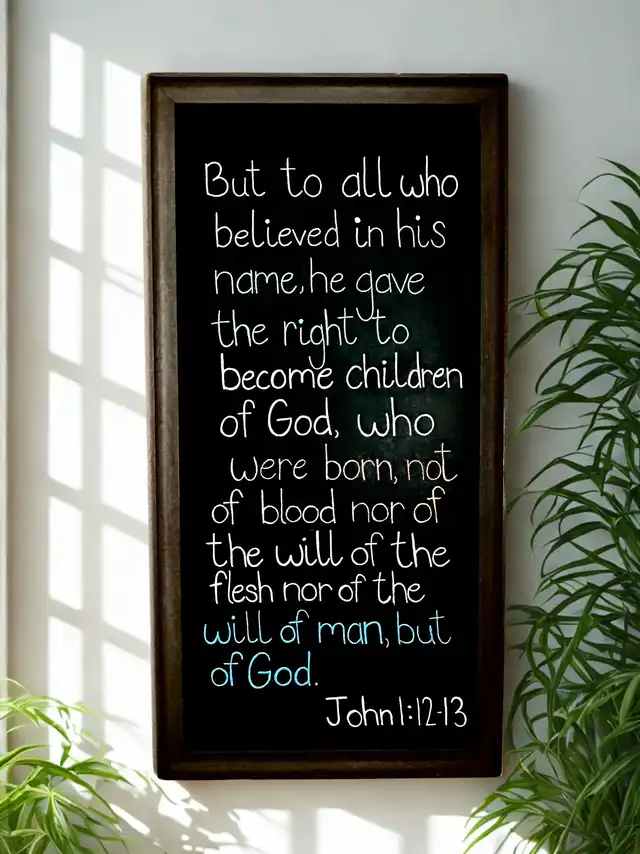 But to all who
believed in his
name, he gave
the right to
become children
of God, who
were born, not
of blood nor of
the will of the
flesh nor of the
will of man, but
of God.
John 1:12-13